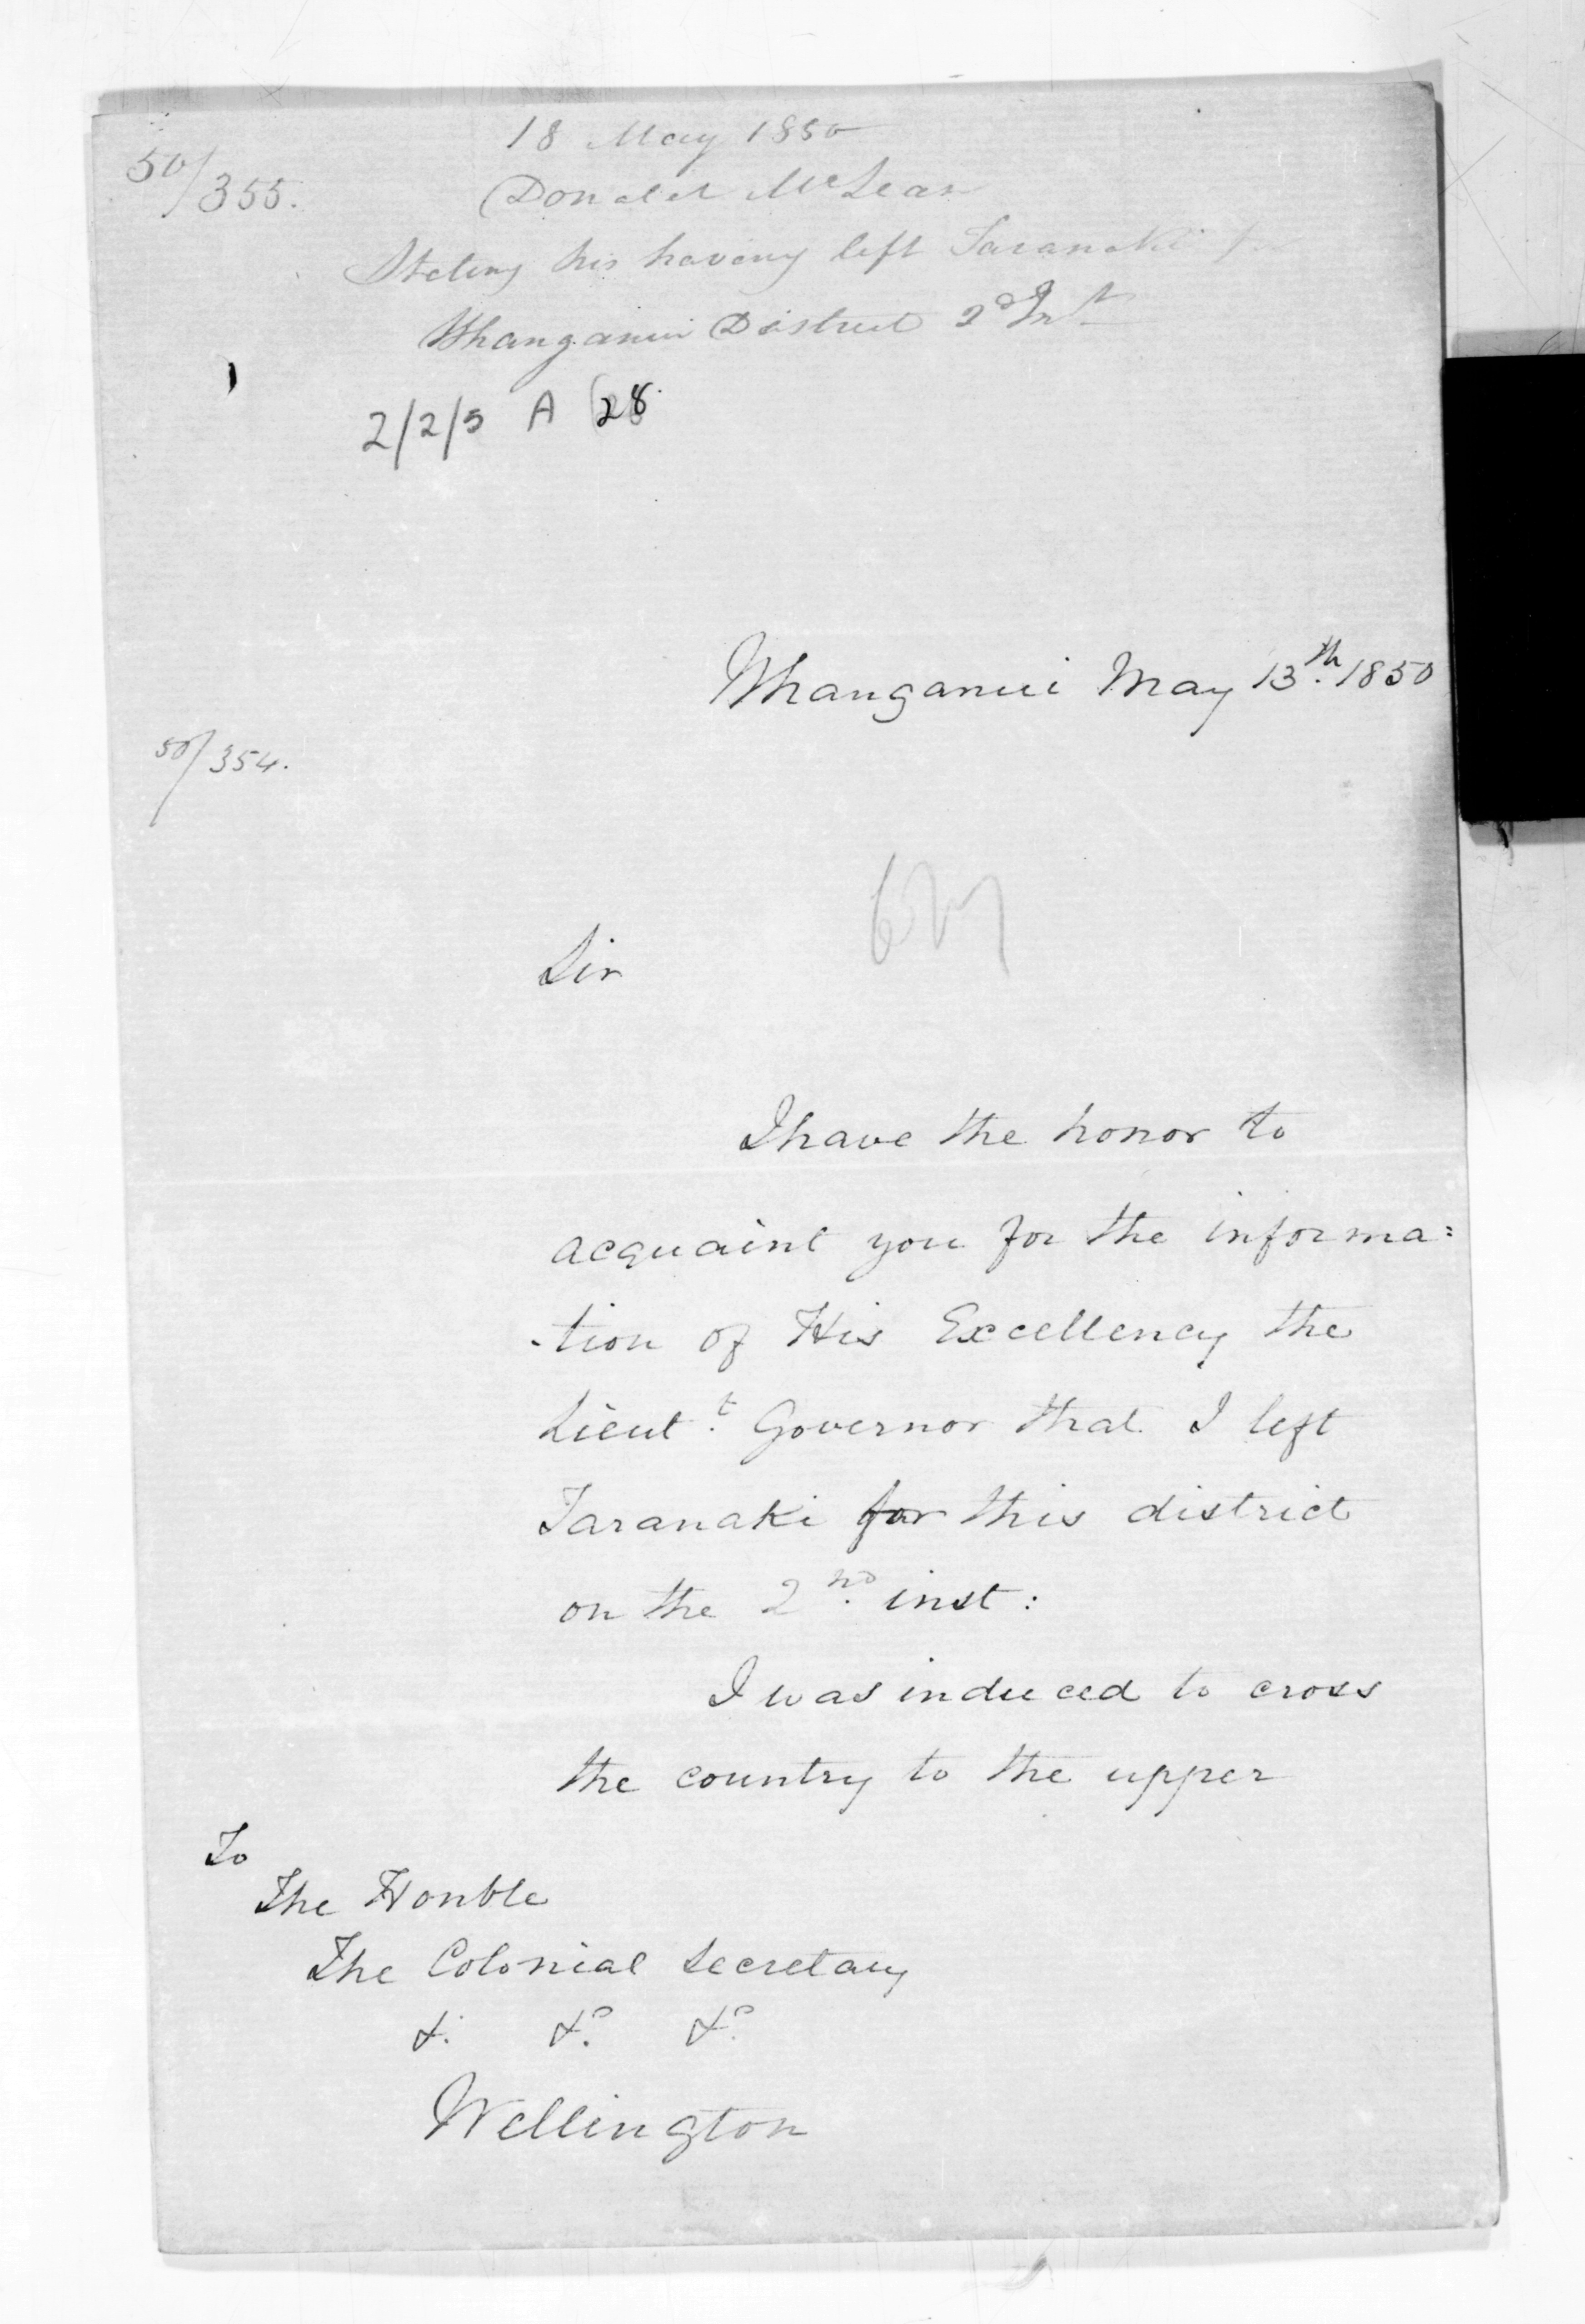 18 May 1850
50/355.
Donald McLean
Stating his having left Taranaki for
Whanganui District 2d Inst
2/2/5 A 28
Whanganui May 13th. 1850
50/354.
Sir
I have the honor to
acquaint you for the informa=
-tion of His Excellency the
Lieut.t Governor that I left
Taranaki for this district
on the 2nd. inst:
I was induced to cross
the country to the upper
To
The Honble
The Colonial Secretary
&. &c. &c.
Wellington